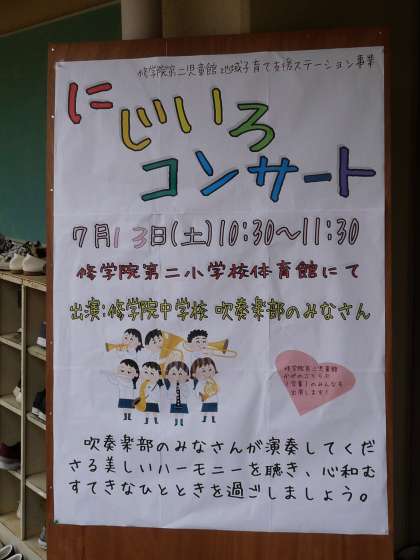 修学院第二児童館 地域子育て支援ステーション事業
にじいろ
コンサート
7月13日(土)10:30～11:30
修学院第二小学校体育館にて
出演:修学院中学校 吹奏楽部のみなさん
修学院第二児童館
のみんなも
出演します!
吹奏楽部のみなさんが演奏してくだ
さる美しいハーモニーを聴き、心和む
すてきなひとときを過ごしましょう。